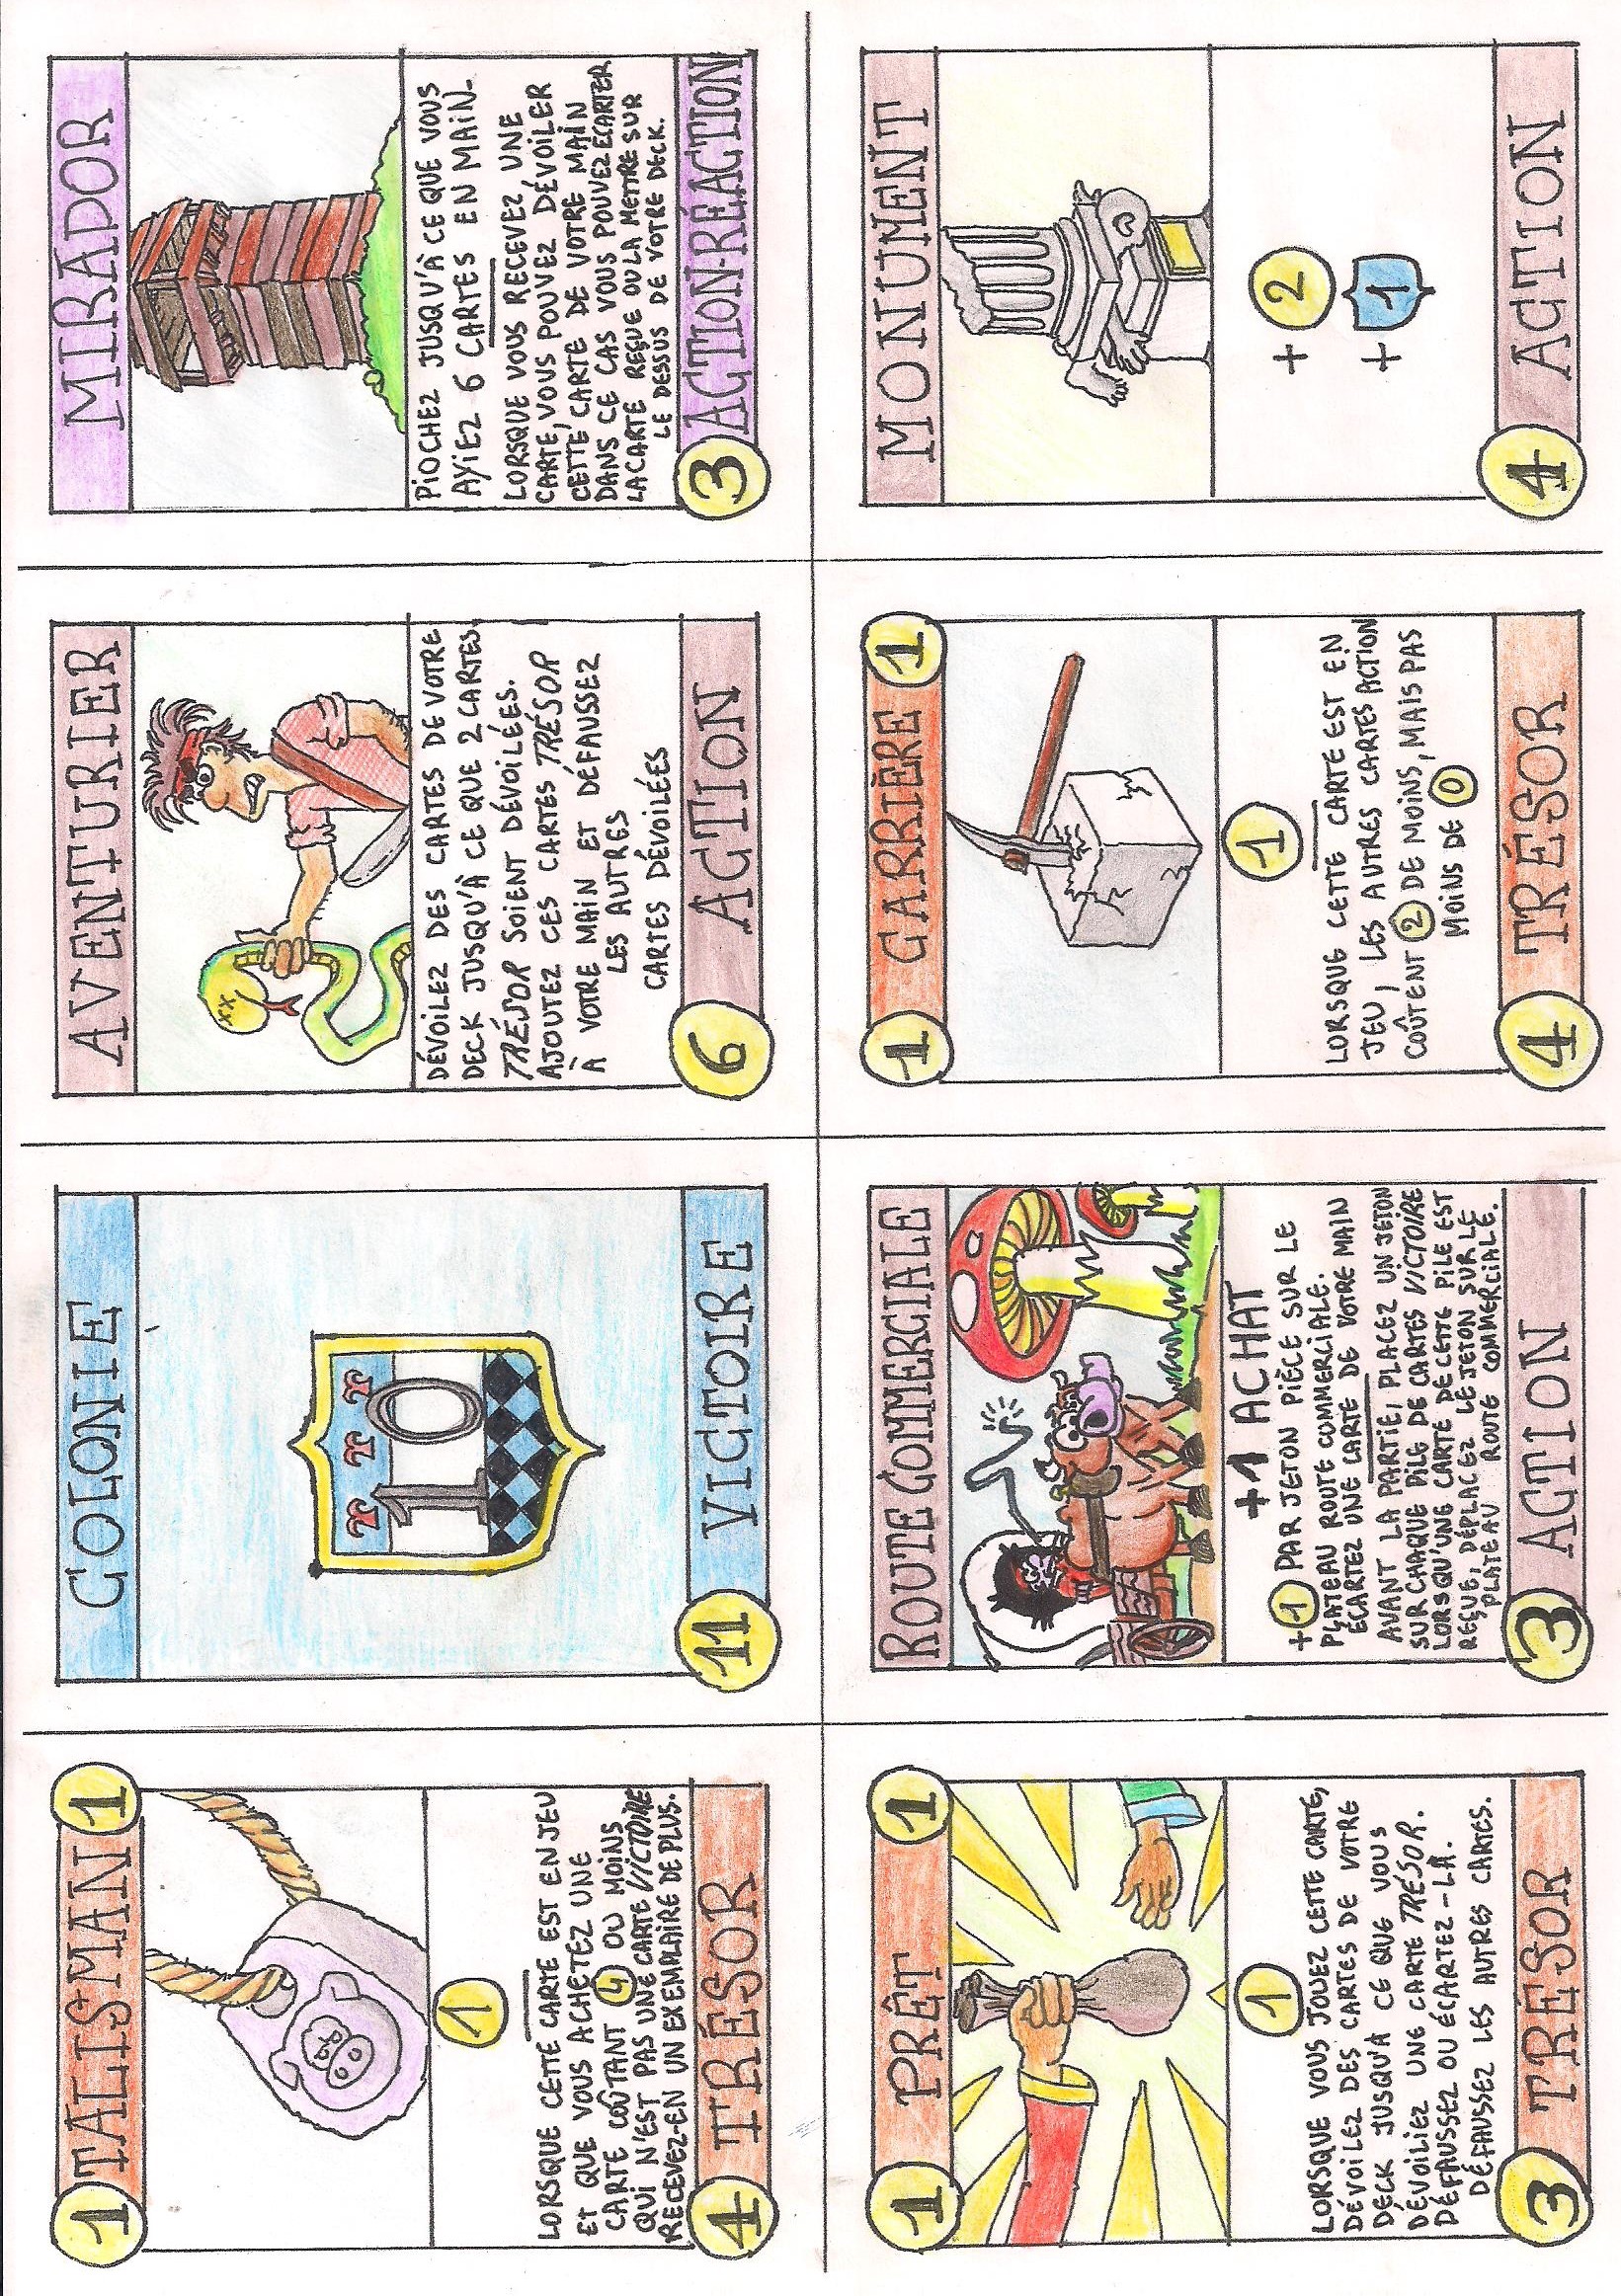 1 TALISMAN 1
1
LORSQUE CETTE CARTE EST EN JEU
ET QUE VOUS ACHETEZ UNE
CARTE COÛTANT 4 OU MOINS
QUI N'EST PAS UNE CARTE VICTOIRE
RECEVEZ-EN UN EXEMPLAIRE DE PLUS.
4 TRÉSOR
COLONIE
10
11 VICTOIRE
AVENTURIER
DÉVOILEZ DES CARTES DE VOTRE
DECK JUSQU'À CE QUE 2 CARTES
TRÉSOR SOIENT DÉVOILÉES.
AJOUTEZ CES CARTES TRÉSOR
À VOTRE MAIN ET DÉFAUSSEZ
LES AUTRES
CARTES DÉVOILÉES
6 ACTION
MIRADOR
PIOCHEZ JUSQU'À CE QUE VOUS
AYIEZ 6 CARTES EN MAIN.
LORSQUE VOUS RECEVEZ, UNE
CARTE, VOUS POUVEZ DÉVOILER
CETTE CARTE DE VOTRE MAIN
DANS CE CAS VOUS POUVEZ ÉCARTER
LA CARTE REÇUE OU LA METTRE SUR
LE DESSUS DE VOTRE DECK.
3 ACTION-RÉACTION
1 PRÊT 1
1
LORSQUE VOUS JOUEZ CETTE CARTE,
DÉVOILEZ DES CARTES DE VOTRE
DECK JUSQU'À CE QUE VOUS
DÉVOILIEZ UNE CARTE TRÉSOR.
DÉFAUSSEZ OU ÉCARTEZ-LÀ.
DÉFAUSSEZ LES AUTRES CARTES.
3 TRÉSOR
ROUTE COMMERCIALE
+1 ACHAT
+1 PAR JETON PIÈCE SUR LE
PLATEAU ROUTE COMMERCIALE.
ÉCARTEZ UNE CARTE DE VOTRE MAIN
AVANT LA PARTIE, PLACEZ UN JETON
SUR CHAQUE PILE DE CARTES VICTOIRE
LORSQU'UNE CARTE DE CETTE PILE EST
REÇUE, DÉPLACEZ LE JETON SUR LE
PLATEAU ROUTE COMMERCIALE.
3 ACTION
1 CARRIÈRE 1
1
LORSQUE CETTE CARTE EST EN
JEU, LES AUTRES CARTES ACTION
COÛTENT 2 DE MOINS, MAIS PAS
MOINS DE 0
4 TRÉSOR
MONUMENT
+ 2
+ 1
4 ACTION